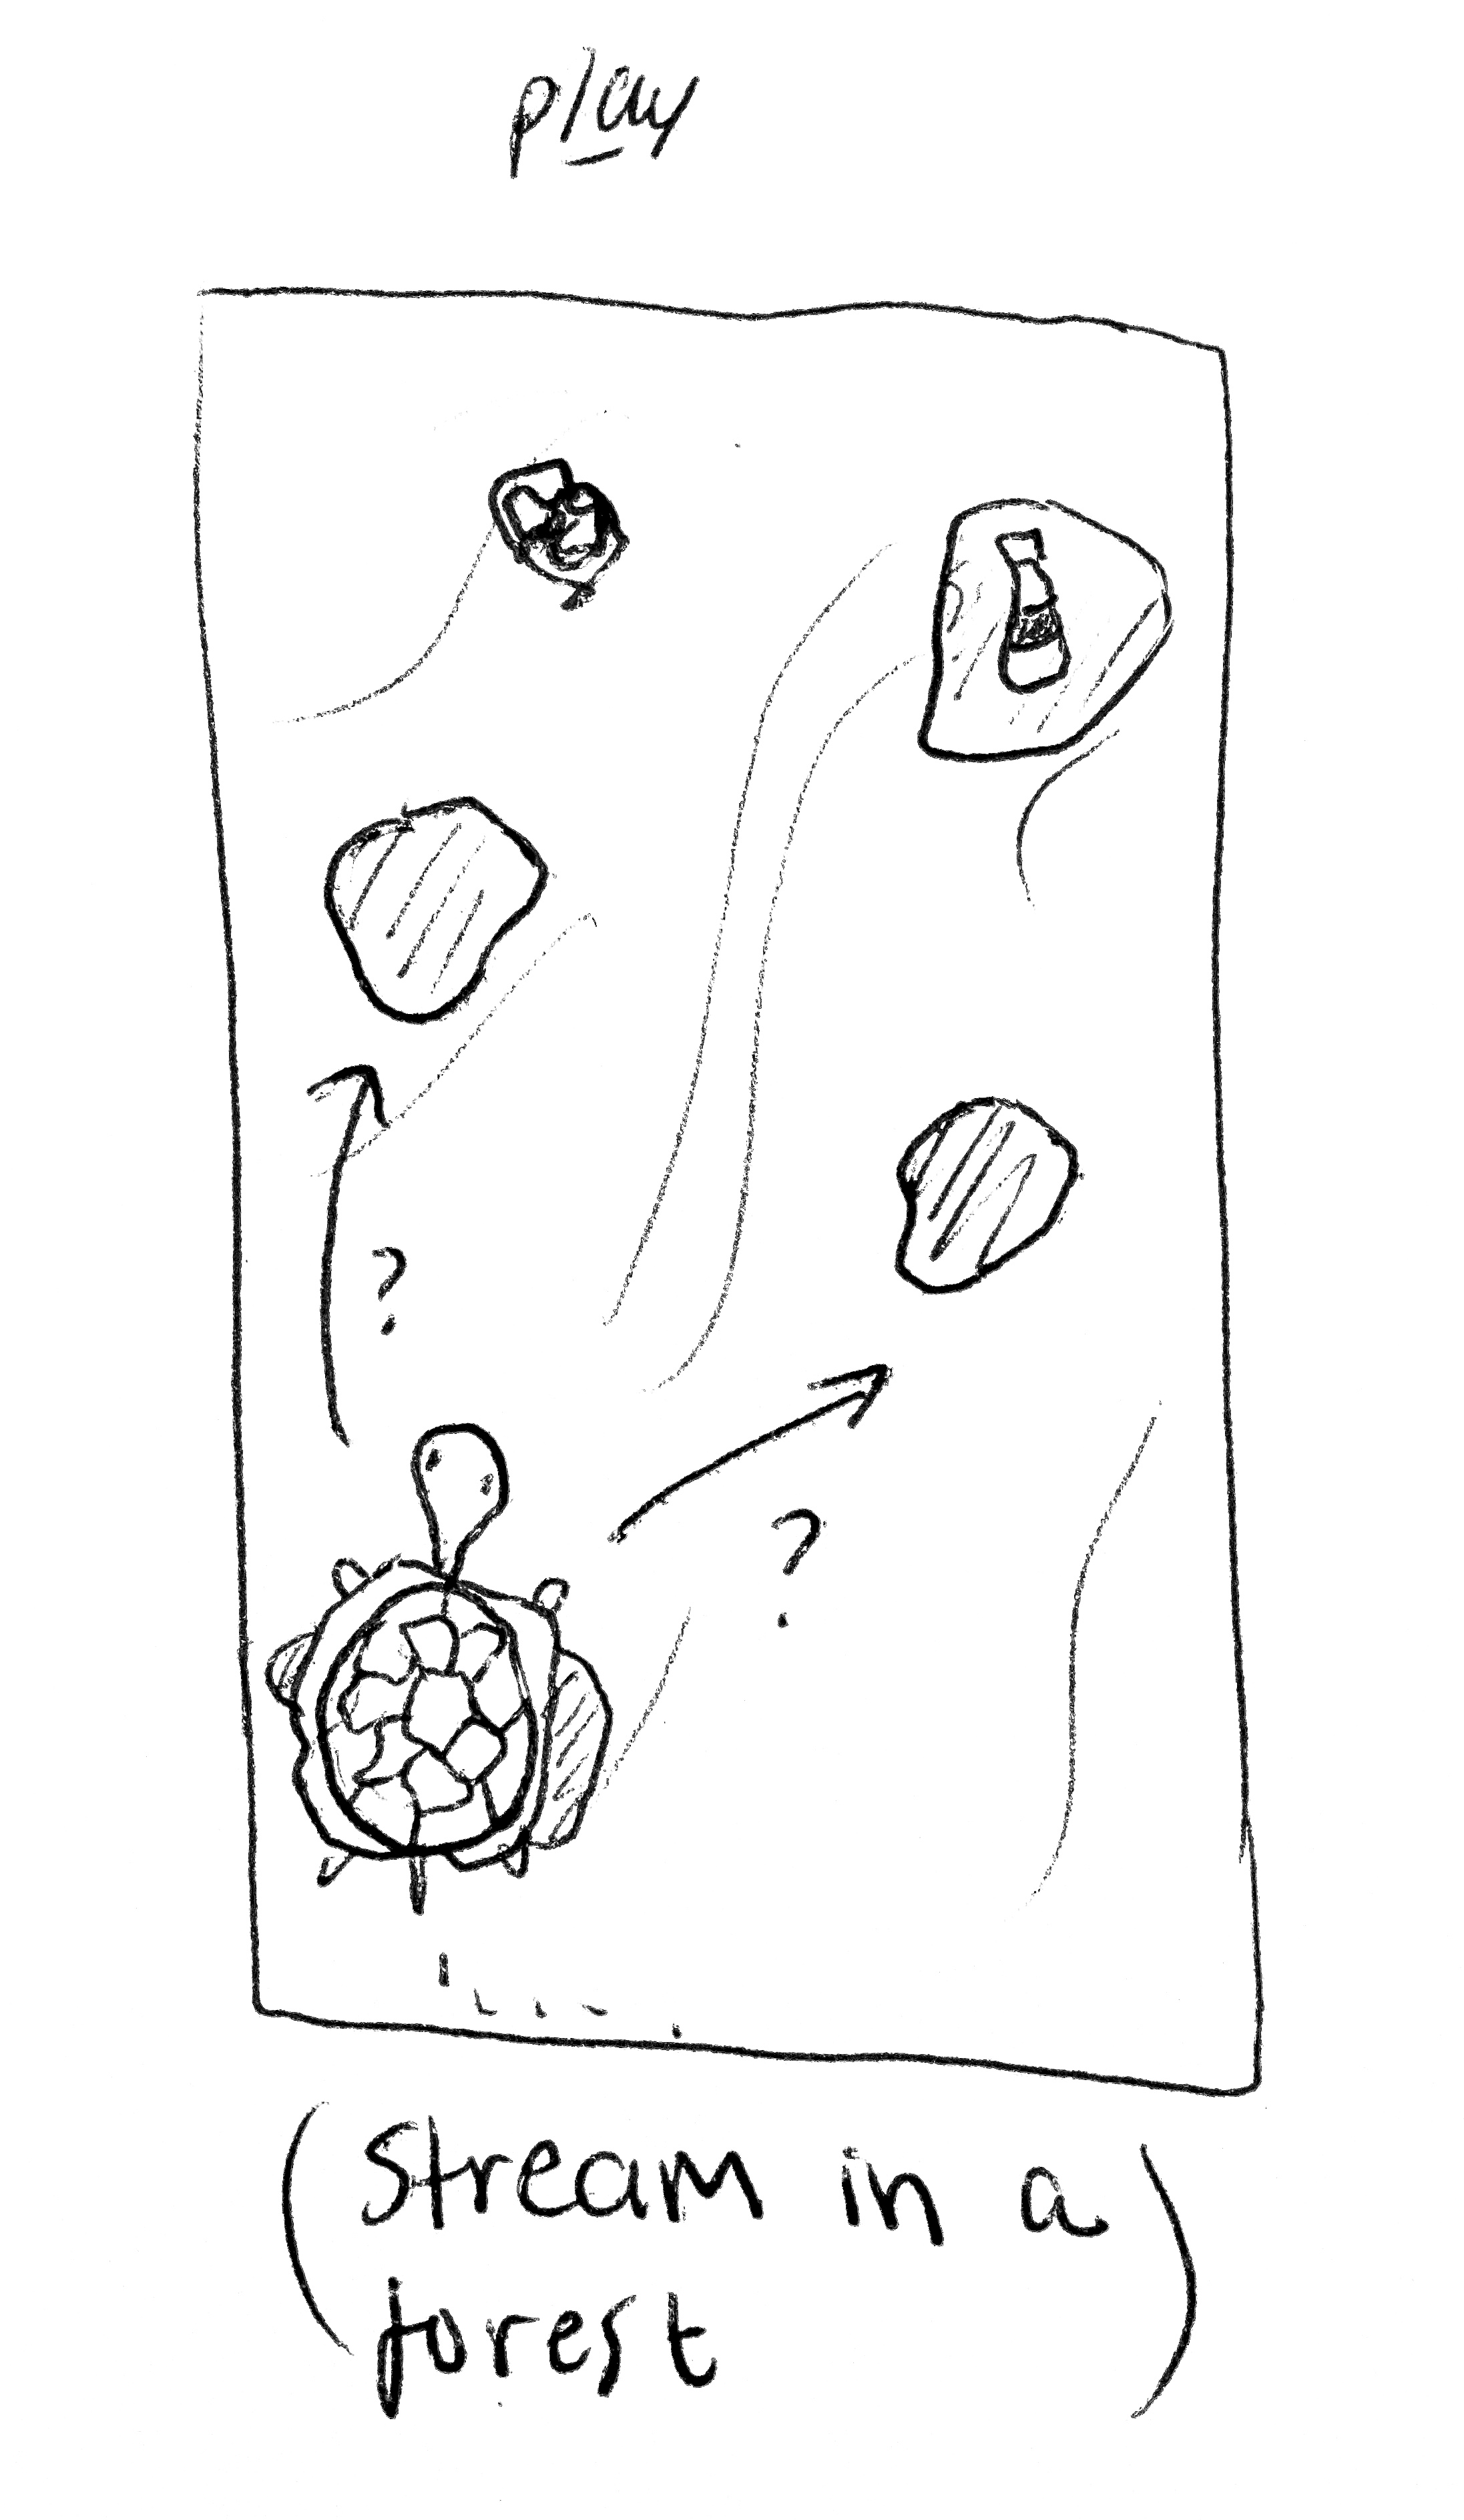 play
?
?
(Stream in a
forest)